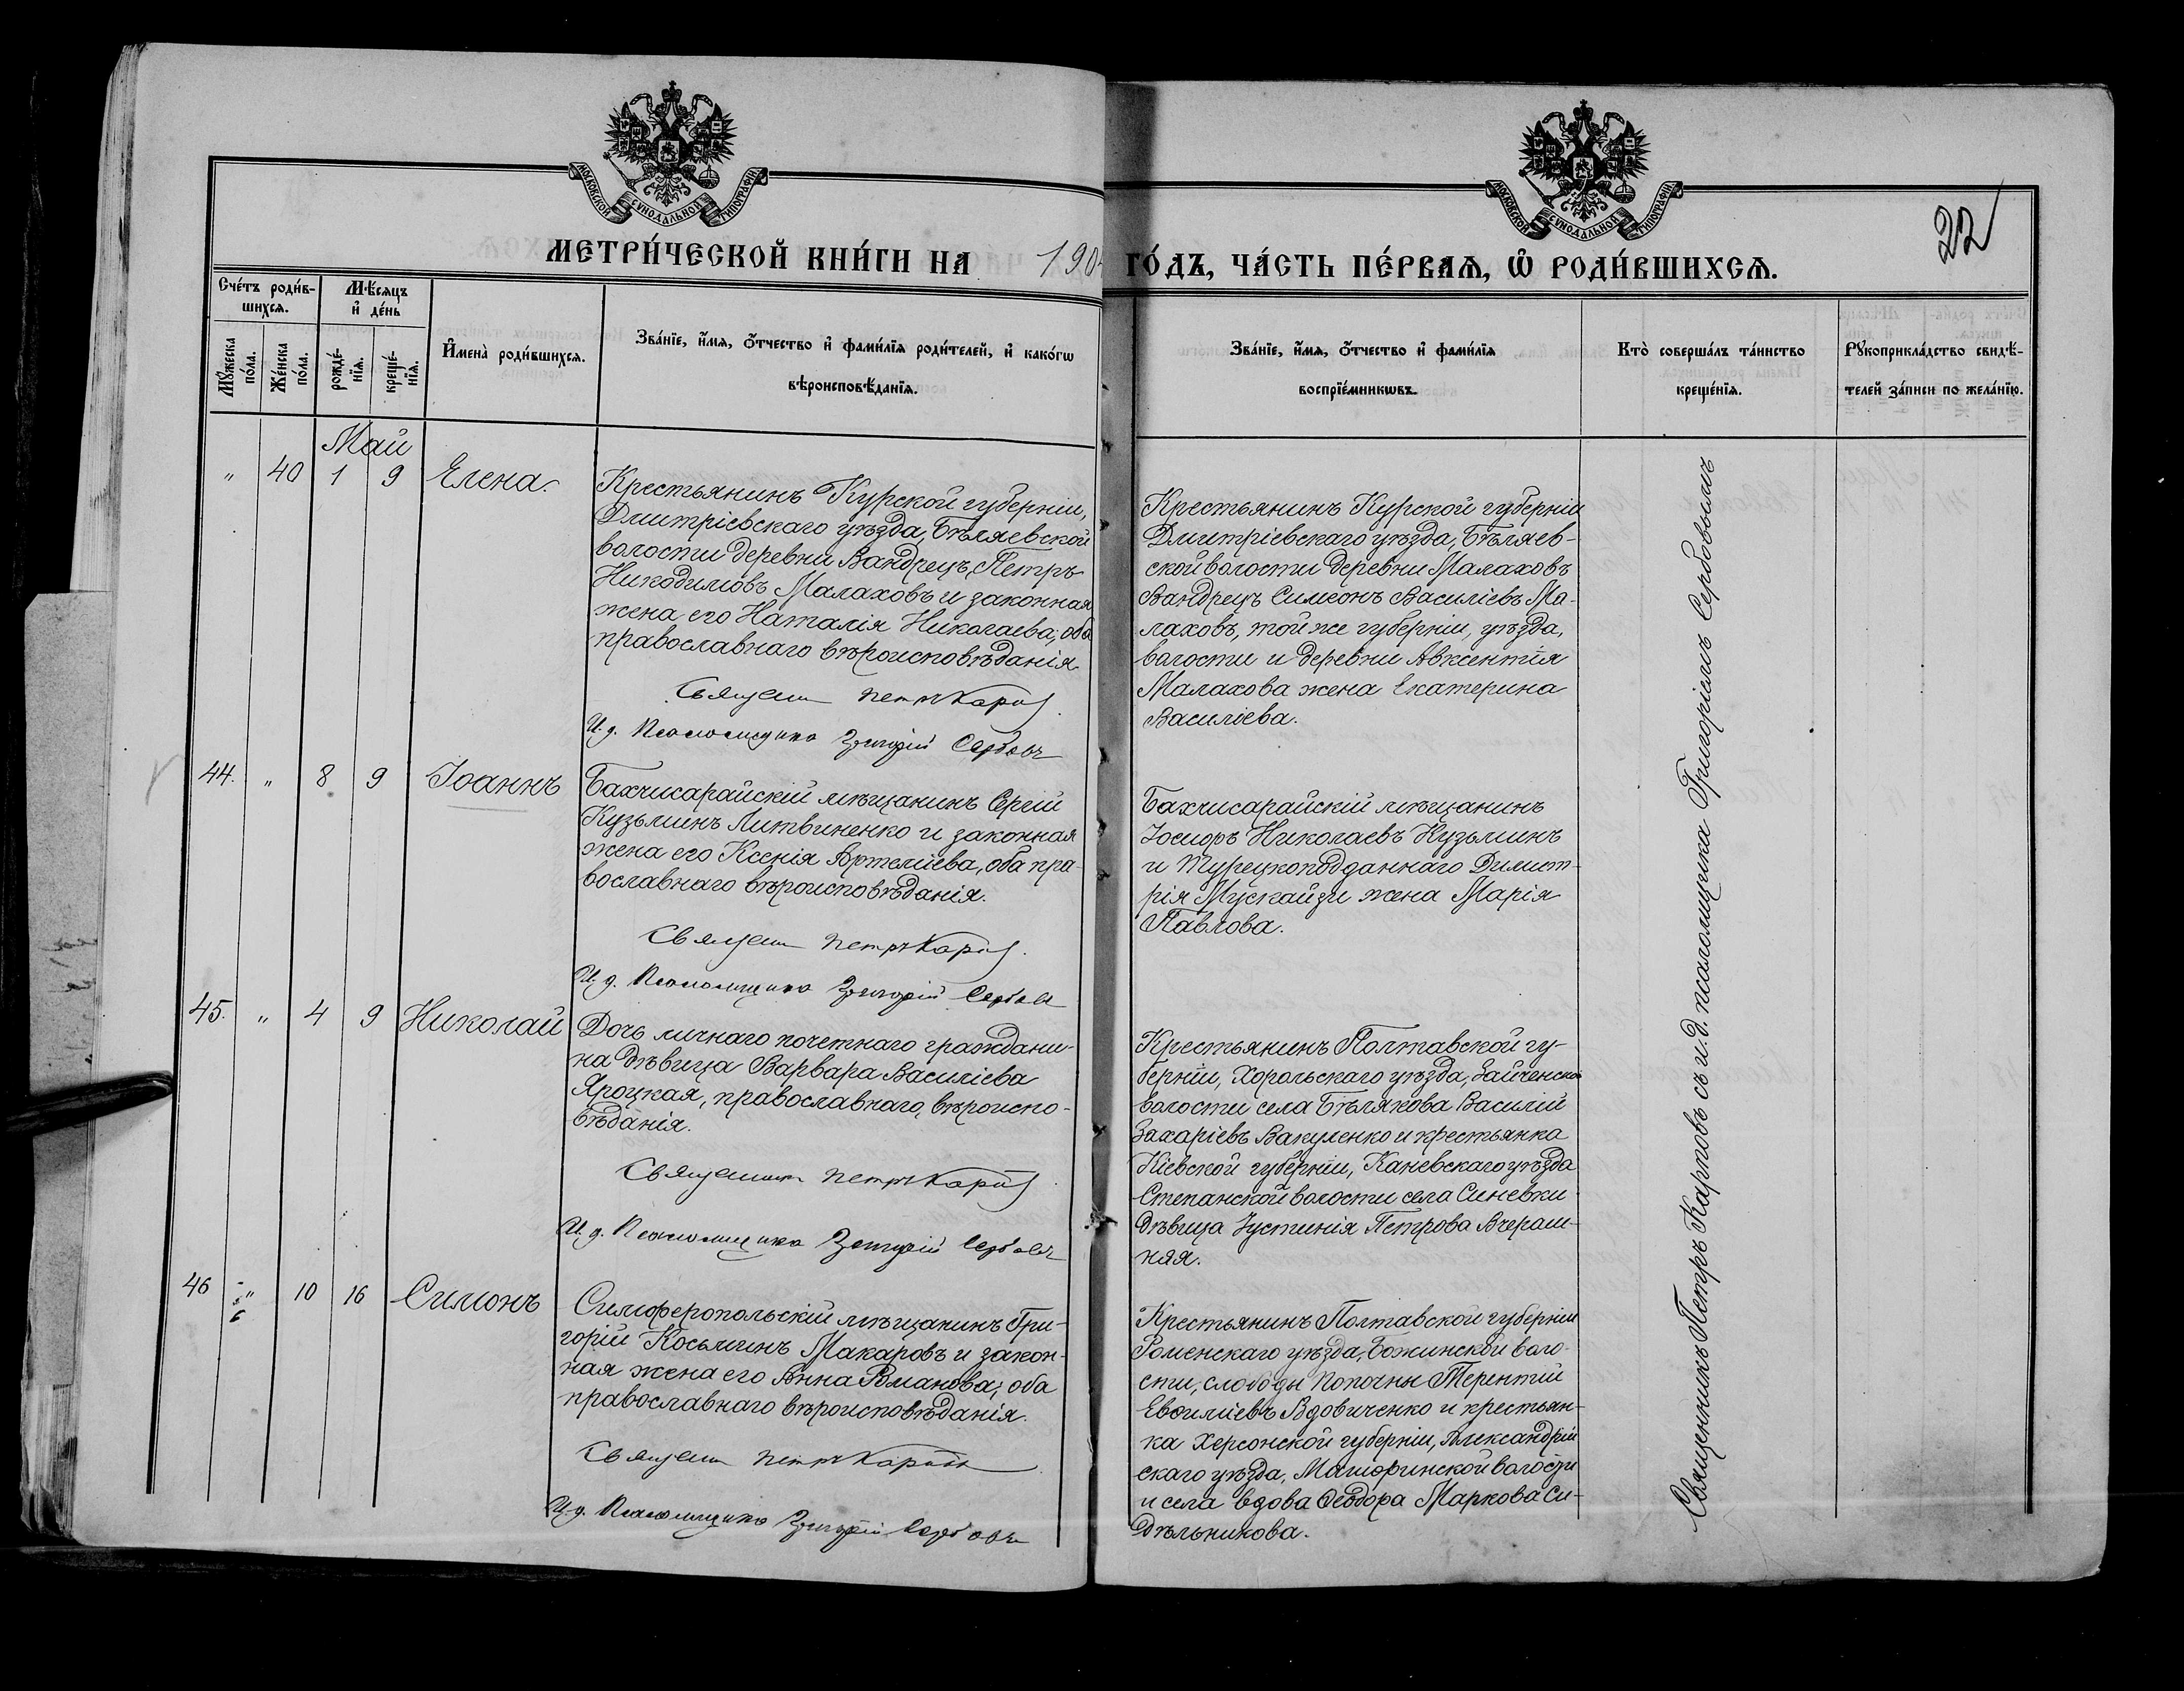 МОСКОВСКОЙ СѴНОДАЛЬНОЙ ТИПОГРАФІИ
МОСКОВСКОЙ СѴНОДАЛЬНОЙ ТИПОГРАФІИ
22
МЕТРИ́ЧЕСКОЙ КНИ́ГИ НА 190
ГО́ДЪ, ЧА́СТЬ ПЕ́РВАѦ, Ѡ РОДИ́ВШИХСѦ.
Сче́тъ роди́в-
шихсѧ.
Мѣ́сѧцъ
и҆ де́нь
Мꙋ́жеска
по́ла.
Же́нска
по́ла.
рожде́-
нїѧ.
креще́-
нїѧ.
И҆́мена̀ роди́вшихсѧ.
Зва́нїе, и҆́мѧ, ѻ҆́тчество и҆ фами́лїѧ роди́телей, и҆ како́гѡ
вѣроисповѣ́данїѧ.
Зва́нїе, и҆́мѧ, ѻ҆́тчество и҆ фами́лїѧ
воспрїе́мникѡвъ.
Кто̀ соверша́лъ та́инство
креще́нїѧ.
Рꙋкоприкла́дство свидѣ́-
телей за́писи по жела́нїю.
Май
" 40 1 9 Елена.
Крестьянинъ Курской губерніи,
Дмитріевскаго уѣзда, Бѣляевской
волости деревни Вандрецъ, Петръ
Никодимовъ Малаховъ и законная
жена его Наталія Николаева, оба
православнаго вѣроисповѣданія
Священ Петръ Карп
И. д. Псаломщика Григорій Сербовъ
Крестьянинъ Курской губерніи
Дмитріевскаго уѣзда, Бѣляев-
ской волости деревни Малаховъ
Вандрецъ Симеонъ Василіевъ Ма-
лаховъ, той же губерніи, уѣзда,
волости и деревни Авксентія
Малахова жена Екатерина
Василіева.
44. " 8 9 Іоаннъ
Бахчисарайскій мѣщанинъ Сергій
Кузьминъ Литвиненко и законная
жена его Ксенія Артеміева, оба пра-
вославнаго вѣроисповѣданія.
Священ Петръ Карп
И. д. Псаломщика Григорій Сербовъ
Бахчисарайскій мѣщанинъ
Николаевъ Кузьминъ
и Турецкоподданнаго Димит-
рія жена Марія
Павлова.
45. " 4 9 Николай
Дочь личнаго почетнаго граждани-
на дѣвица Варвара Василіева
Яроцкая, православнаго, вѣроиспо-
вѣданія.
Священник Петръ Карп
И. д. Псаломщика Григорій Сербовъ
Крестьянинъ Полтавской гу-
берніи, Хорольскаго уѣзда,
волости села Бѣлякова Василій
Захаріевъ Вакуленко и крестьянка
Кіевской губерніи, Каневскаго уѣзда
Степанской волости села Синевки
дѣвица Іустинія Петрова Вчераш-
няя.
46 " 10 16 Симонъ
Симферопольскій мѣщанинъ Гри-
горій Косьминъ Макаровъ и закон-
ная жена его Анна Романова; оба
православнаго вѣроисповѣданія.
Священ Петръ Карповъ
И. д. Псаломщика Григорій Сербовъ
Крестьянинъ Полтавской губерніи
Роменскаго уѣзда, воло-
сти, слободы Терентій
Вдовиченко и крестьян-
ка Херсонской губерніи, Александрій
скаго уѣзда, волости
и села вдова Ѳеодора Маркова Си-
дѣльникова.
Священникъ Петръ Карповъ съ и. д. псаломщика Григоріемъ Сербовымъ